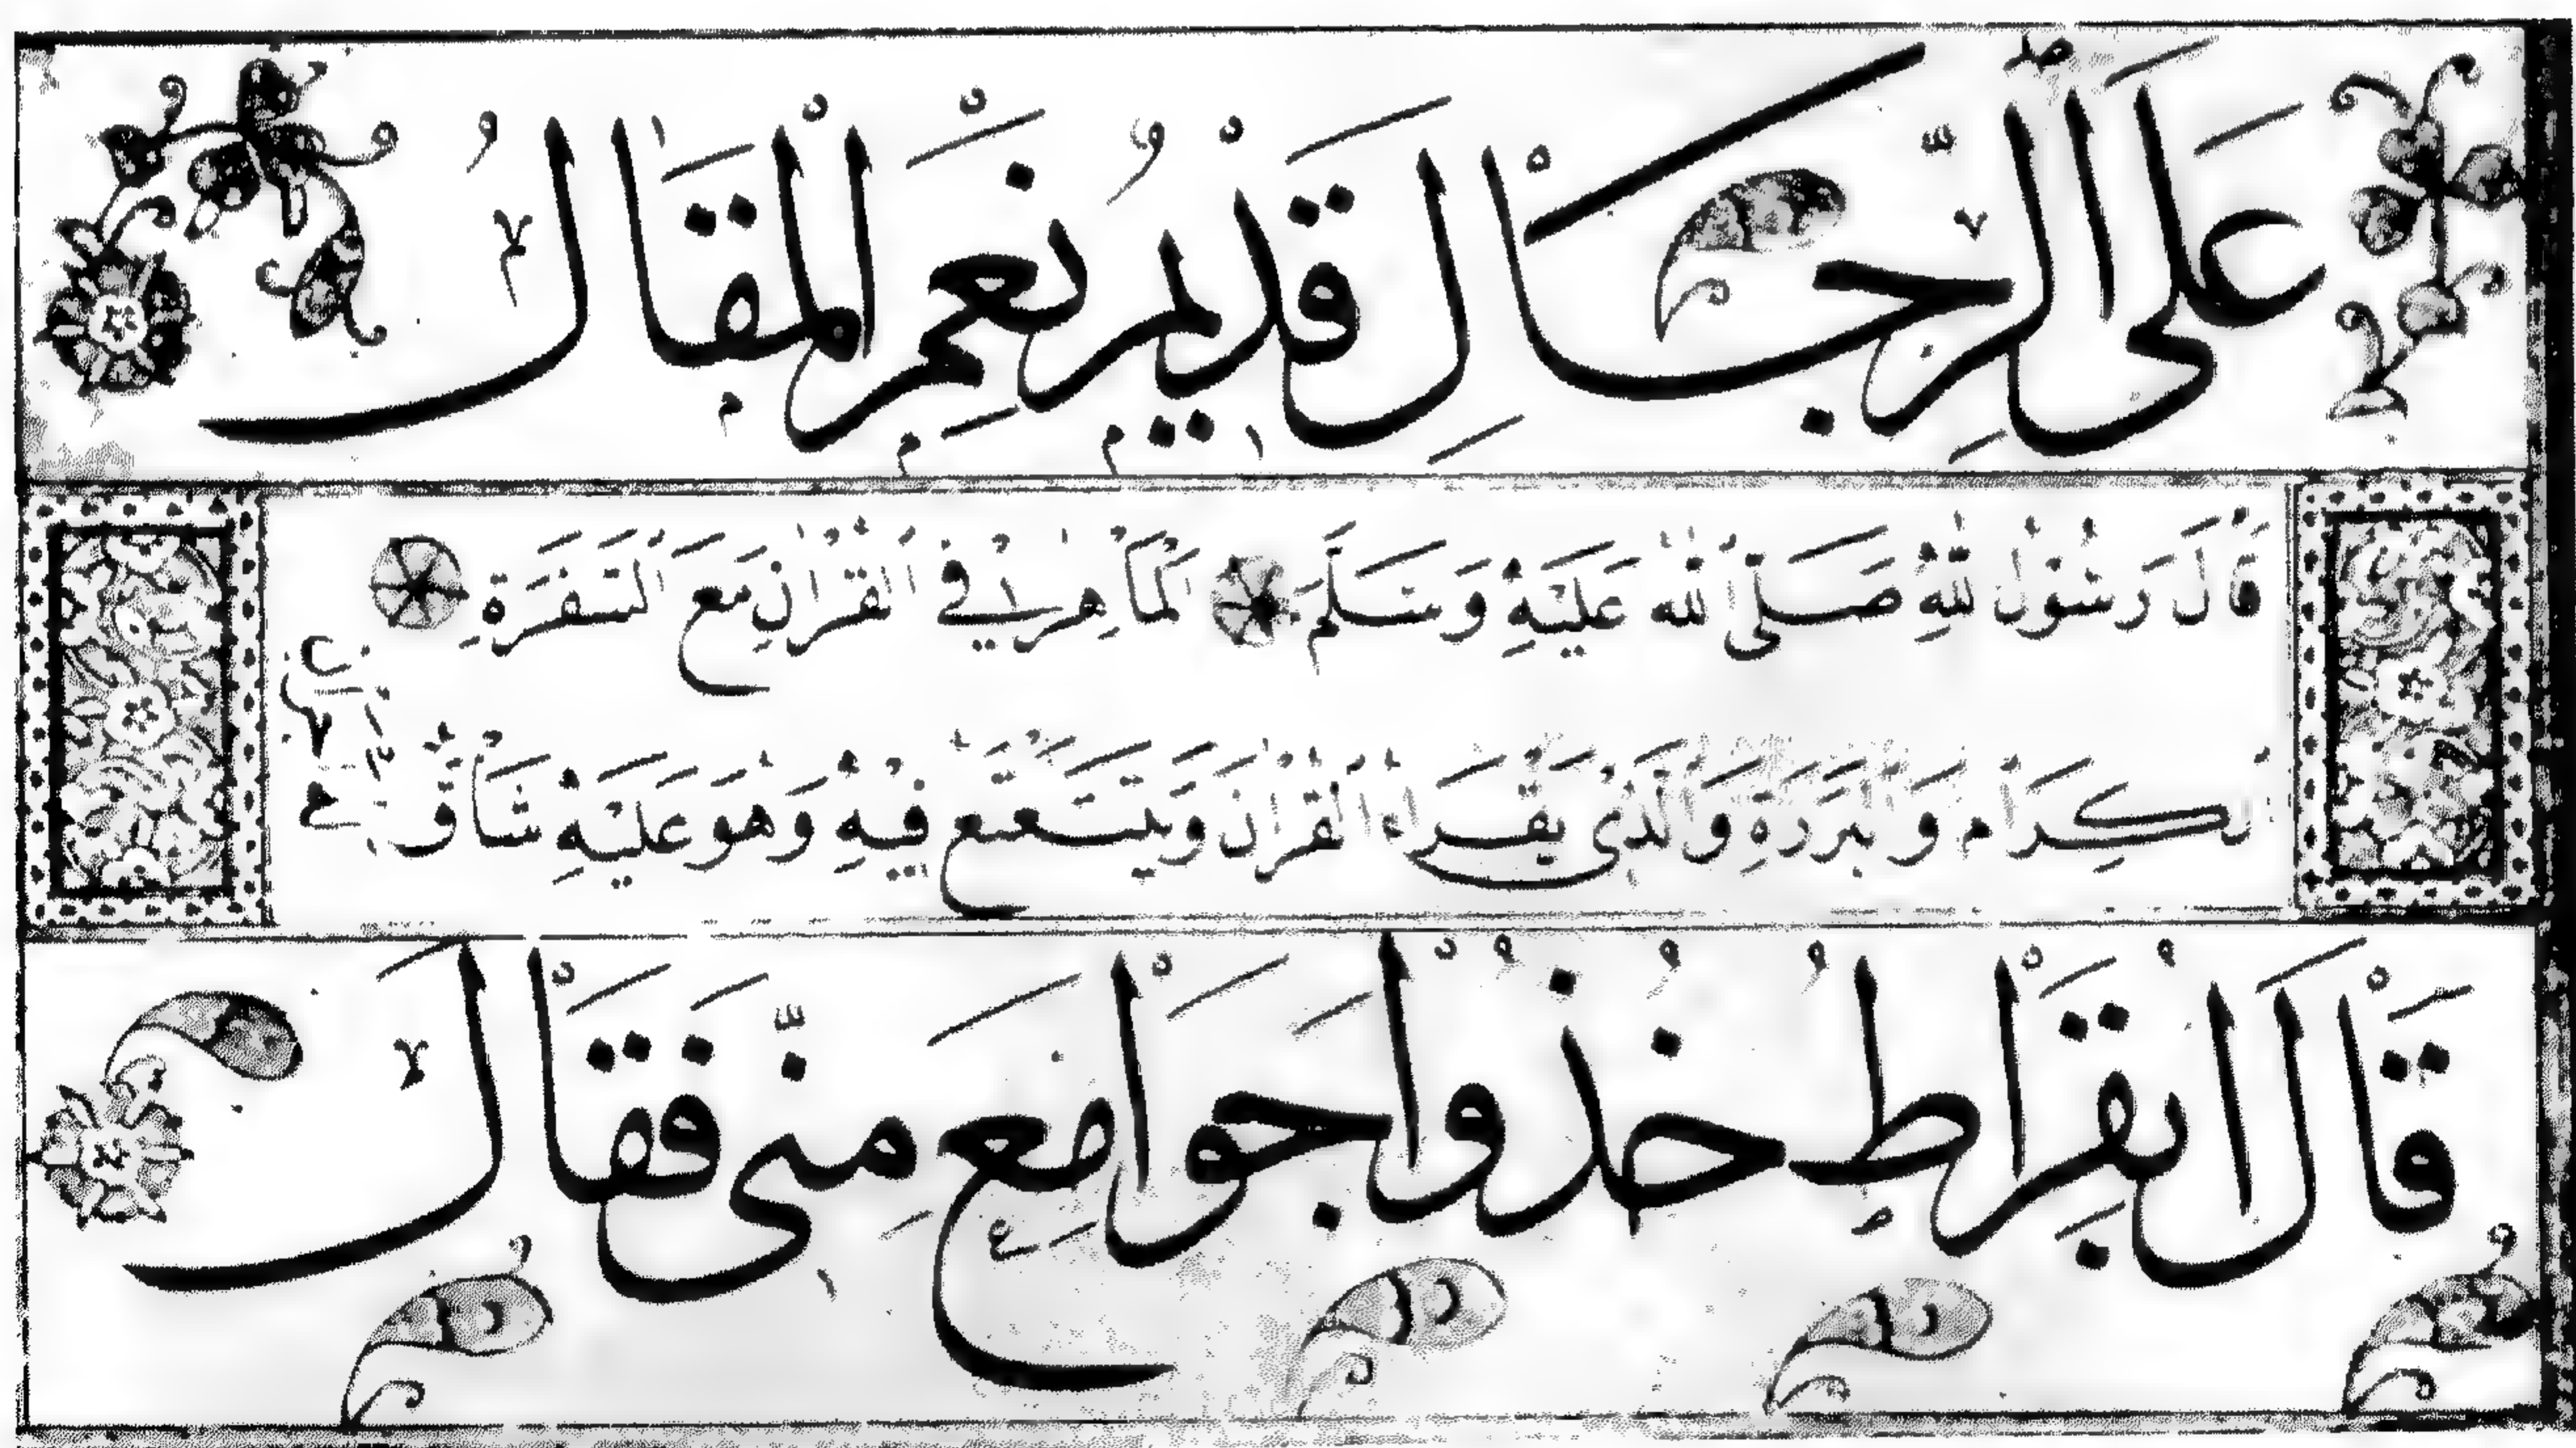 عَلَى الرِّجَالِ قَدِيْمُ نَعِمَ الْمَقَالُ
قَالَ رَسُوْلُ اللهِ صَلَّى اللهُ عَلَيْهِ وَسَلَّمَ اَلْمَاْهِرُ فِي الْقُرْاٰنِ مَعَ السَّفَرَةِ
الكِرَام وَالبَرَرَةِ وَالَّذِى يَقْرَاءُ الْقُرْاٰنَ وَيَتَتَعْتَعُ فِيْهِ وَهُوَ عَلَيْهِ شَاقٌّ
قَالَ ابُقْرَاطُ خُذُوْا جَوَامِعَ مِنِّى فَقَالَ